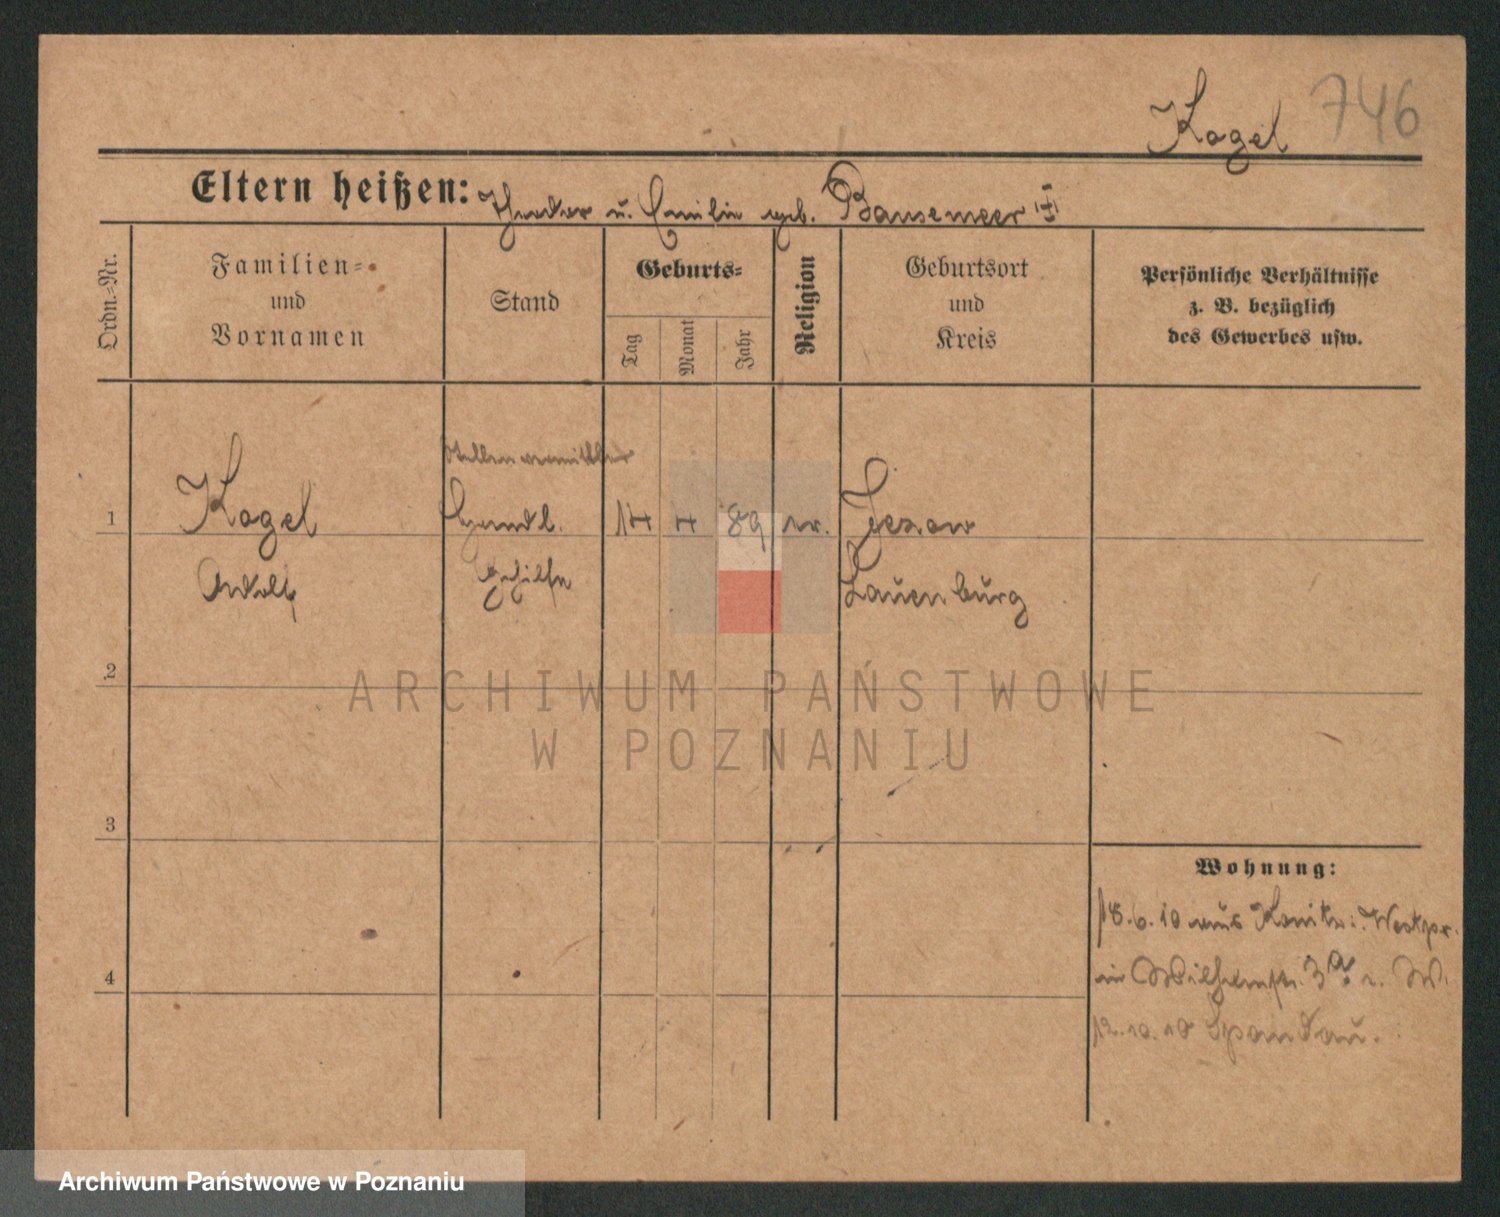 Kogel 746
Eltern heißen: Theodor u. Emilie geb. Bansemeer
Ordn.-Nr.
Familien-
und
Vornamen
Stand
Geburts-
Tag
Monat
Jahr
Religion
Geburtsort
und
Kreis
Persönliche Verhältnisse
z. B. bezüglich
des Gewerbes usw.
Stellenvermittler
1 Kogel Handl. 14 4 89 ev.
Adolf gehilfe Lauenburg
2
ARCHIWUM PAŃSTWOWE
W POZNANIU
3
Wohnung:
18.6.10 aus Konitz i. Westpr.
4
in Wilhelmstr. 3a
12.10.10 Spandau.
Archiwum Państwowe w Poznaniu